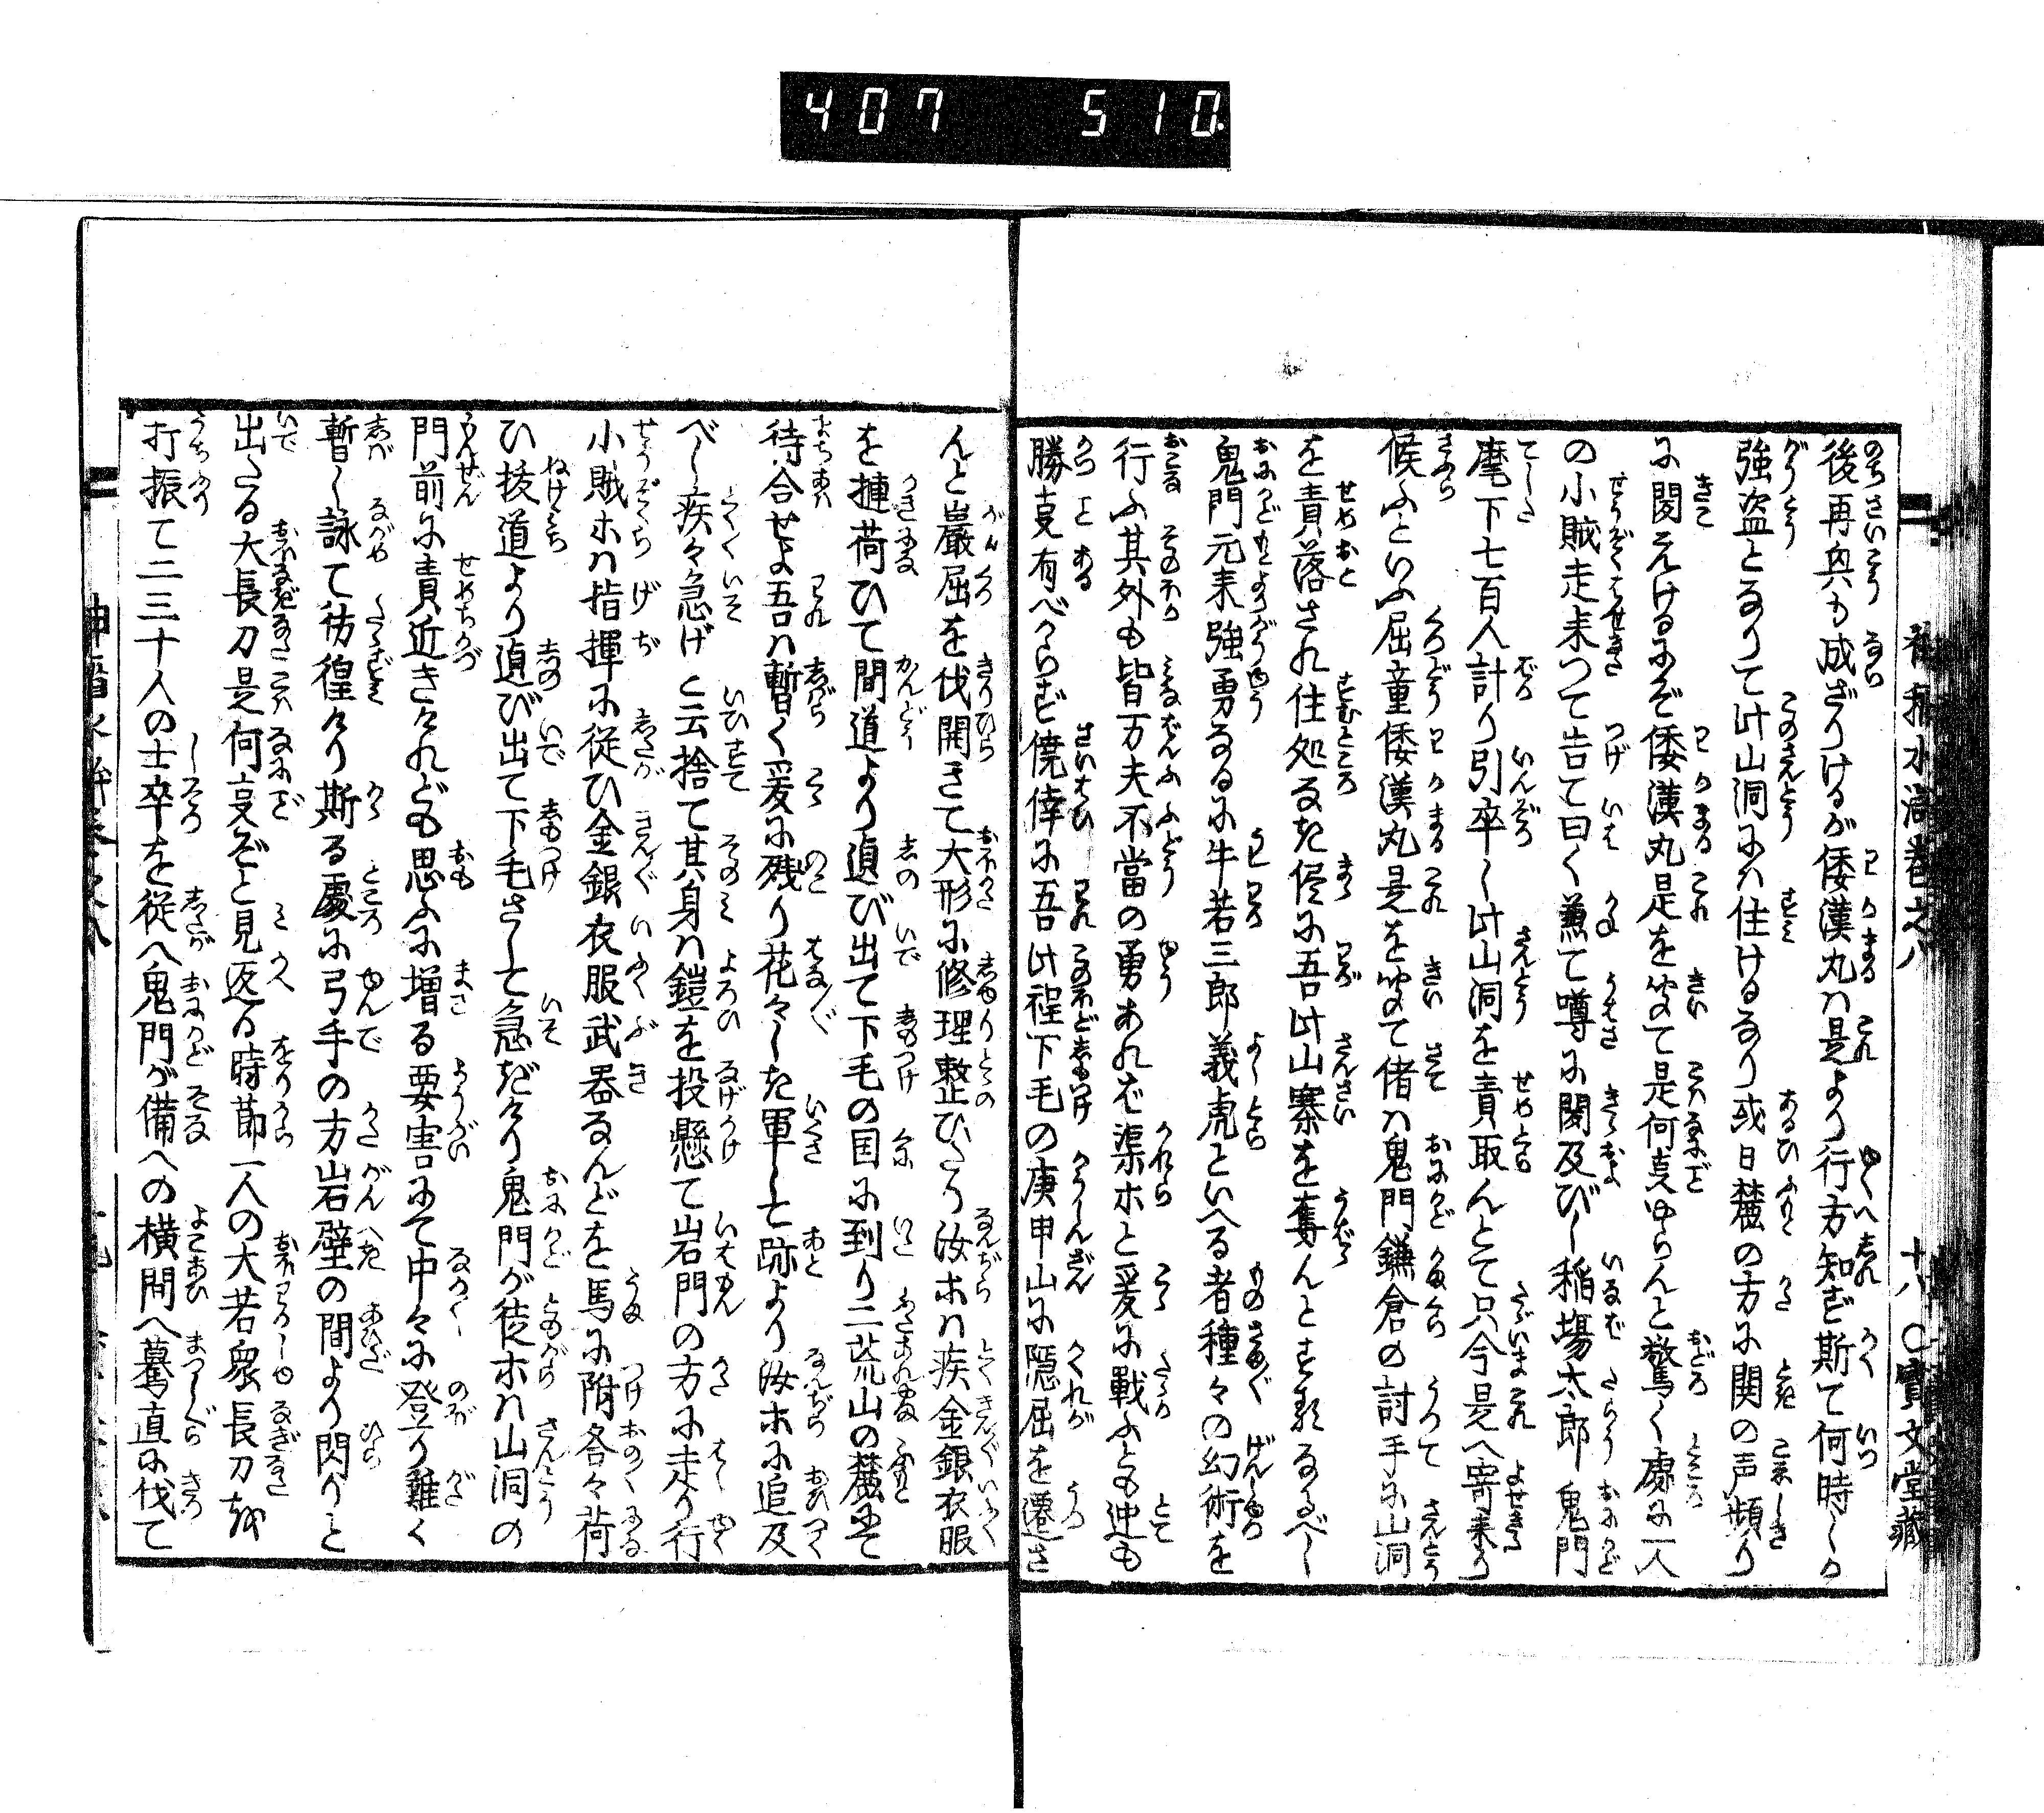 407 510
後再興も成ざりけるが倭漢丸ハ是より行方知ず斯て何時しか
強盗となりて此山洞にハ住けるなり或日麓の方に関の声頻り
に聞えけるにぞ倭漢丸是を聞て是何㕝ゆらんと驚く處に一人
の小賊走来つて告て曰く兼て噂に聞及びし稲場太郎鬼門
麾下七百人計り引卒し此山洞を責取んとて只今是へ寄来り
候ふといふ屈童倭漢丸是を聞て偖ハ鬼門鎌倉の討手に山洞
を責落され住処なき侭に吾此山寨を奪んとする成るべし
鬼門元来強勇なるに牛若三郎義虎といへる者種々の幻術を
行ふ其外も皆万夫不當の勇あれば渠ホと爰に戦ふとも迚も
勝㕝有べからず僥倖に吾此程下毛の庚申山に隠屈を遷さ
んと巌屈を伐開きて大形に修理整ひたり汝ホハ疾金銀衣服
を搥荷ひて間道より遉び出て下毛の国に到り二荒山の麓にて
待合せよ吾ハ暫く爰に残り花々しき軍して跡より汝ホに追及
べし疾々急げと云捨て其身ハ鎧を投懸て岩門の方に走り行
小賊ホハ指揮に従ひ金銀衣服武器なんどを馬に附各々荷
ひ抜道より遉び出て下毛さして急だり鬼門が徒ホハ山洞の
門前に責近きけれども思ふに増る要害にて中々に登り難く
暫し詠て彷徨けり斯る處に弓手の方岩壁の間より閃りと
出たる大長刀是何㕝ぞと見返る時節一人の大若衆長刀を
打振て二三十人の士卒を従へ鬼門が備への横間へ驀直に伐て
巻之八 十八 〇寶文堂蔵